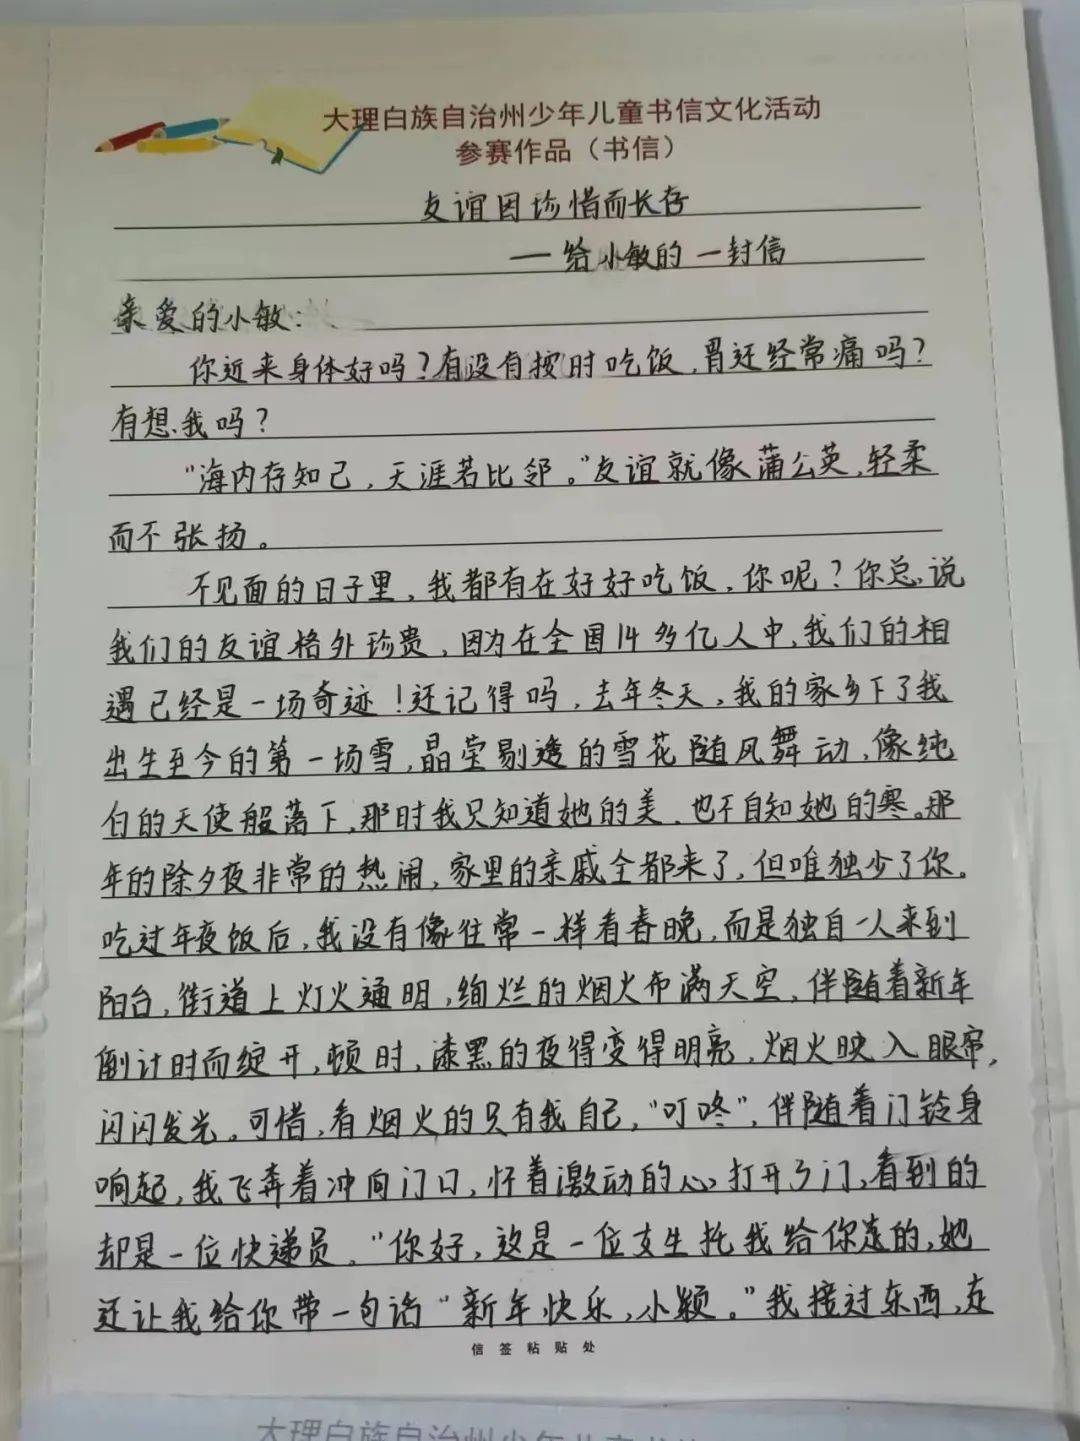 大理白族自治州少年儿童书信文化活动
参赛作品（书信）
友谊因珍惜而长存
——给小敏的一封信
亲爱的小敏：
你近来身体好吗？有没有按时吃饭，胃还经常痛吗？
有想我吗？
“海内存知己，天涯若比邻。”友谊就像蒲公英，轻柔
而不张扬。
不见面的日子里，我都有在好好吃饭，你呢？你总说
我们的友谊格外珍贵，因为在全国14多亿人中，我们的相
遇已经是一场奇迹！还记得吗，去年冬天，我的家乡下了我
出生至今的第一场雪，晶莹剔透的雪花随风舞动，像纯
白的天使般落下，那时我只知道她的美，也不自知她的寒。那
年的除夕夜非常的热闹，家里的亲戚全都来了，但唯独少了你。
吃过年夜饭后，我没有像往常一样看春晚，而是独自一人来到
阳台，街道上灯火通明，绚烂的烟火布满天空，伴随着新年
倒计时而绽开，顿时，漆黑的夜得变得明亮，烟火映入眼帘，
闪闪发光。可惜，看烟火的只有我自己，“叮咚”，伴随着门铃身
响起，我飞奔着冲向门口，怀着激动的心打开了门，看到的
却是一位快递员，“你好，这是一位女生托我给你送的，她
还让我给你带一句话“新年快乐，小颖。”我接过东西，走
信签粘贴处
大理白族自治州少年儿童书信